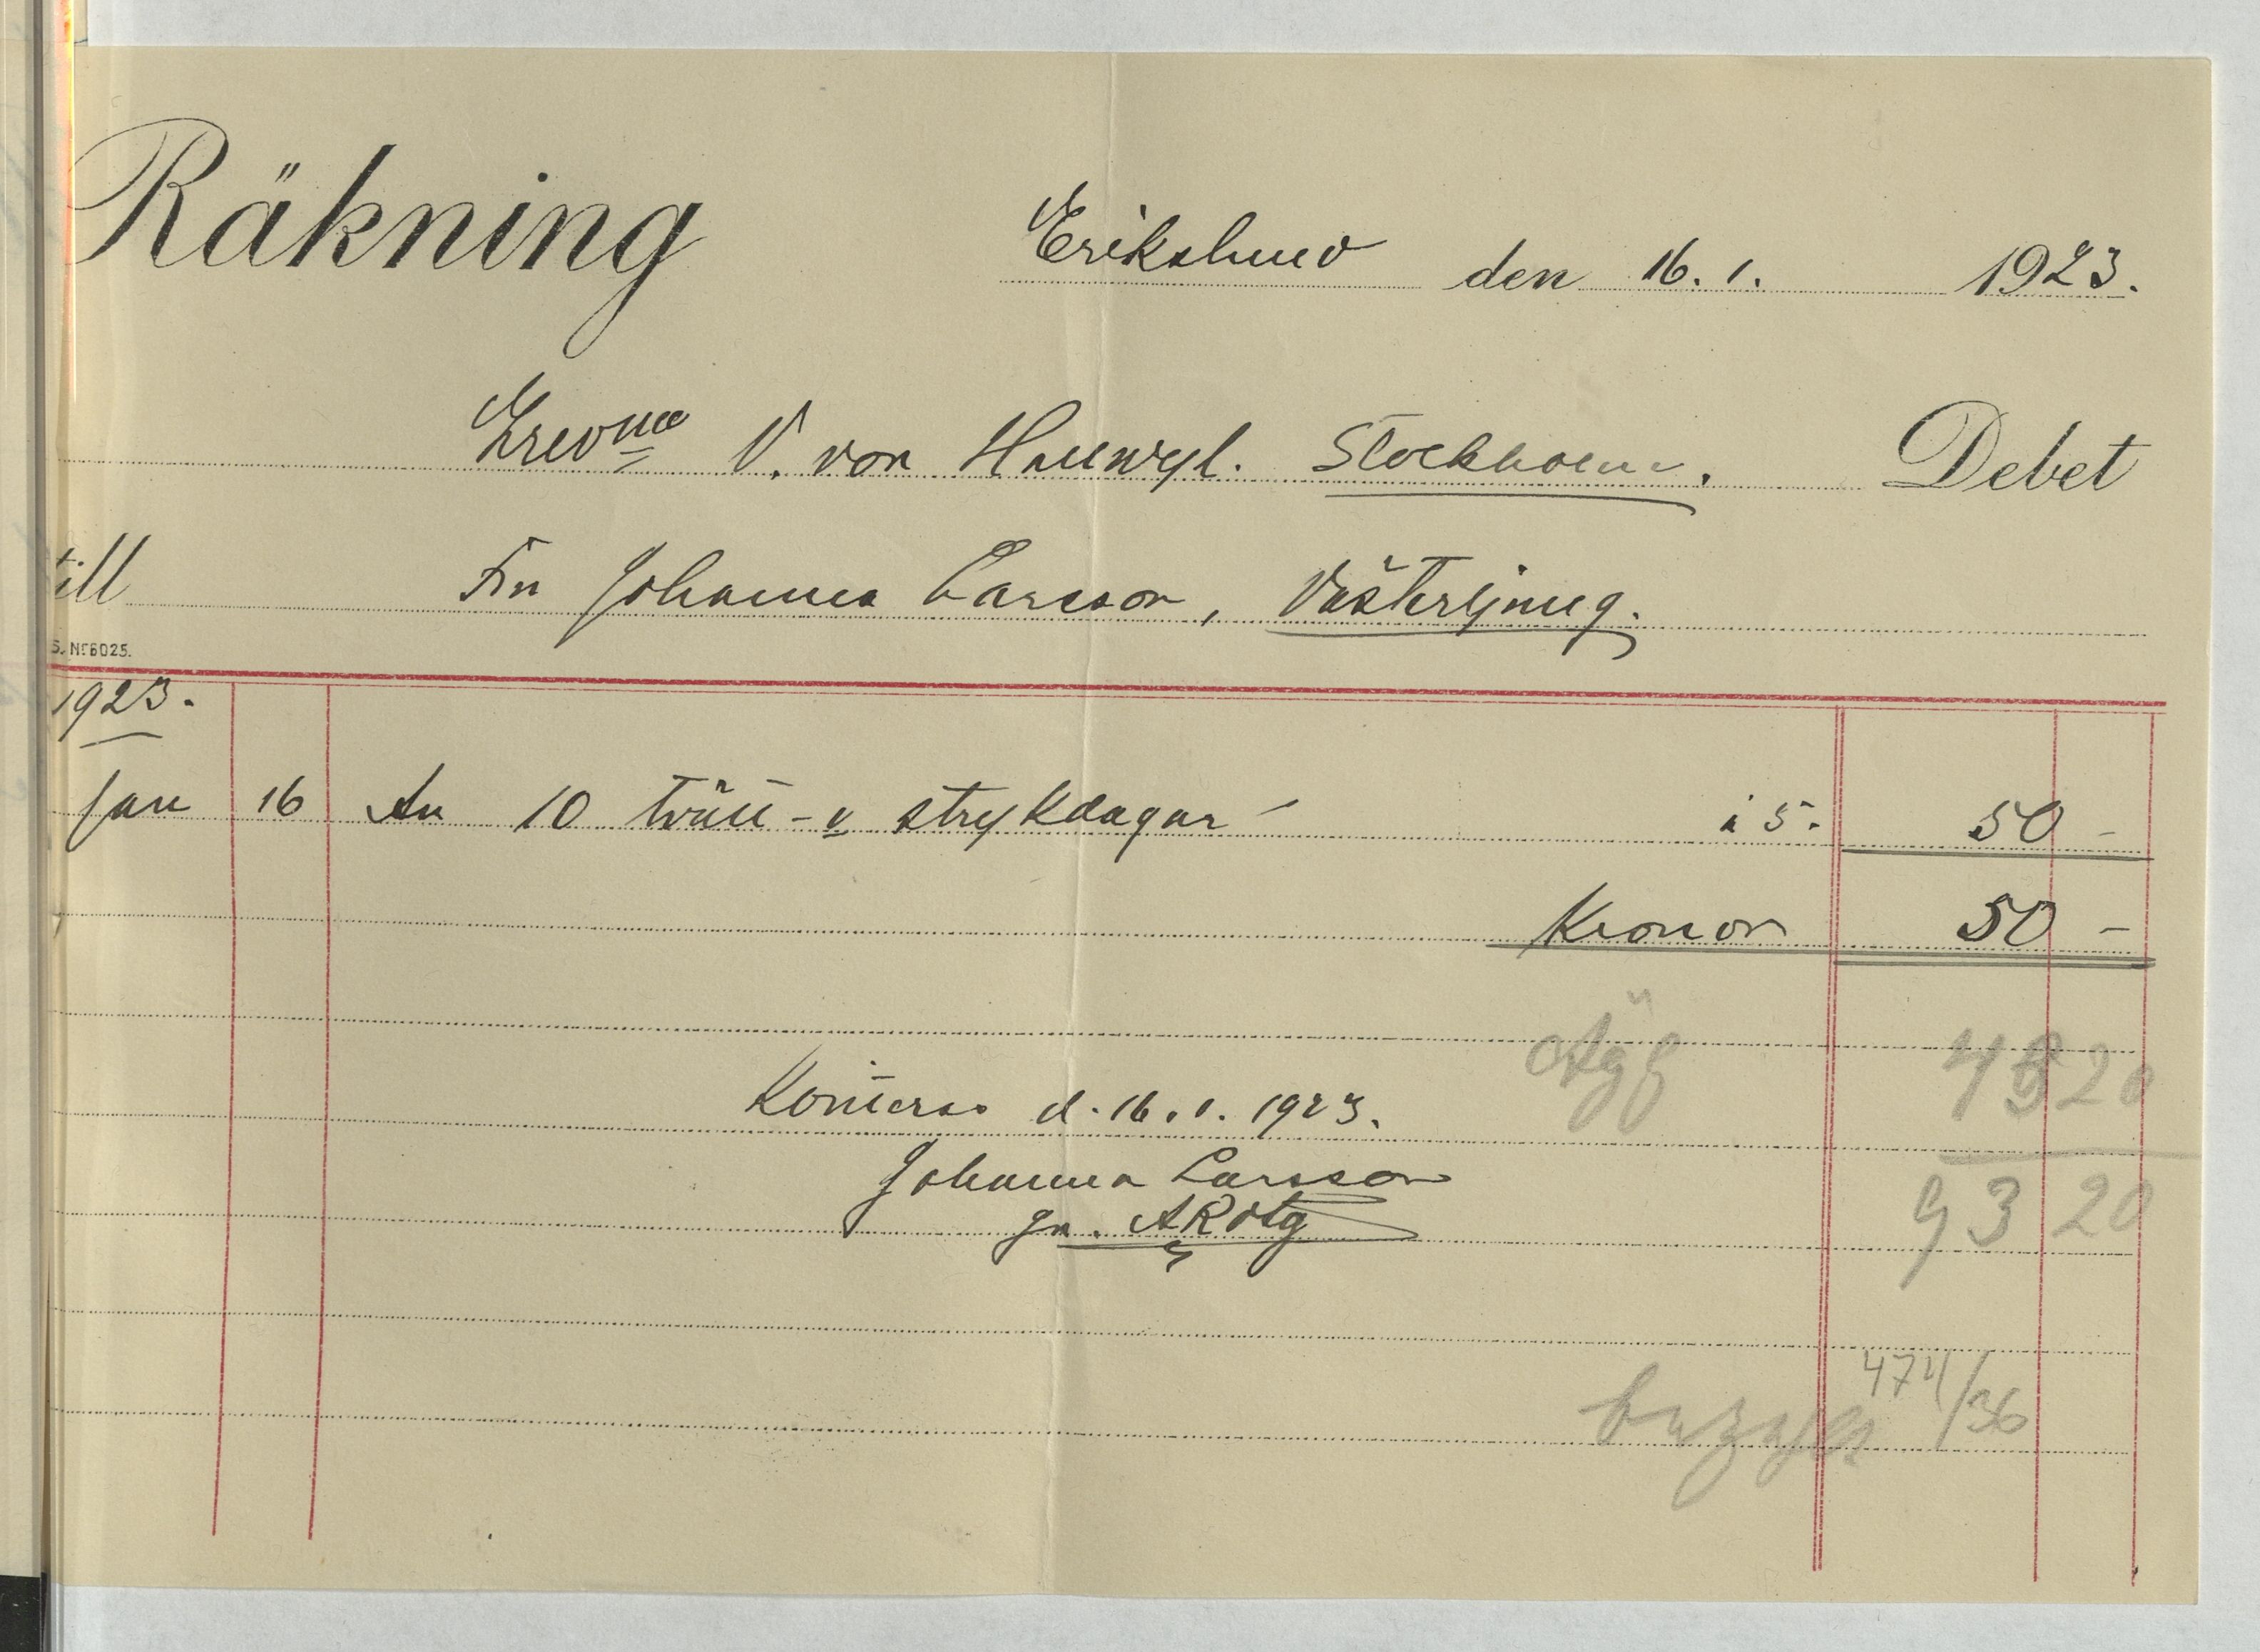 Räkning
Erikslund den 16. 1. 1923.
Grevinna V. von Hallwyl. Stockholm. Debet
till Fru Johanna Larsson, Västerljung.
S. Nº 6025.
1923.
Jan 16 An 10 tvätt- o strykdagar à 5. 50 -
Kronor 50 -
43 20
Kvitteras d. 16. 1. 1923.
Johanna Larsson
gm.
93 20
474/36
bezahlt